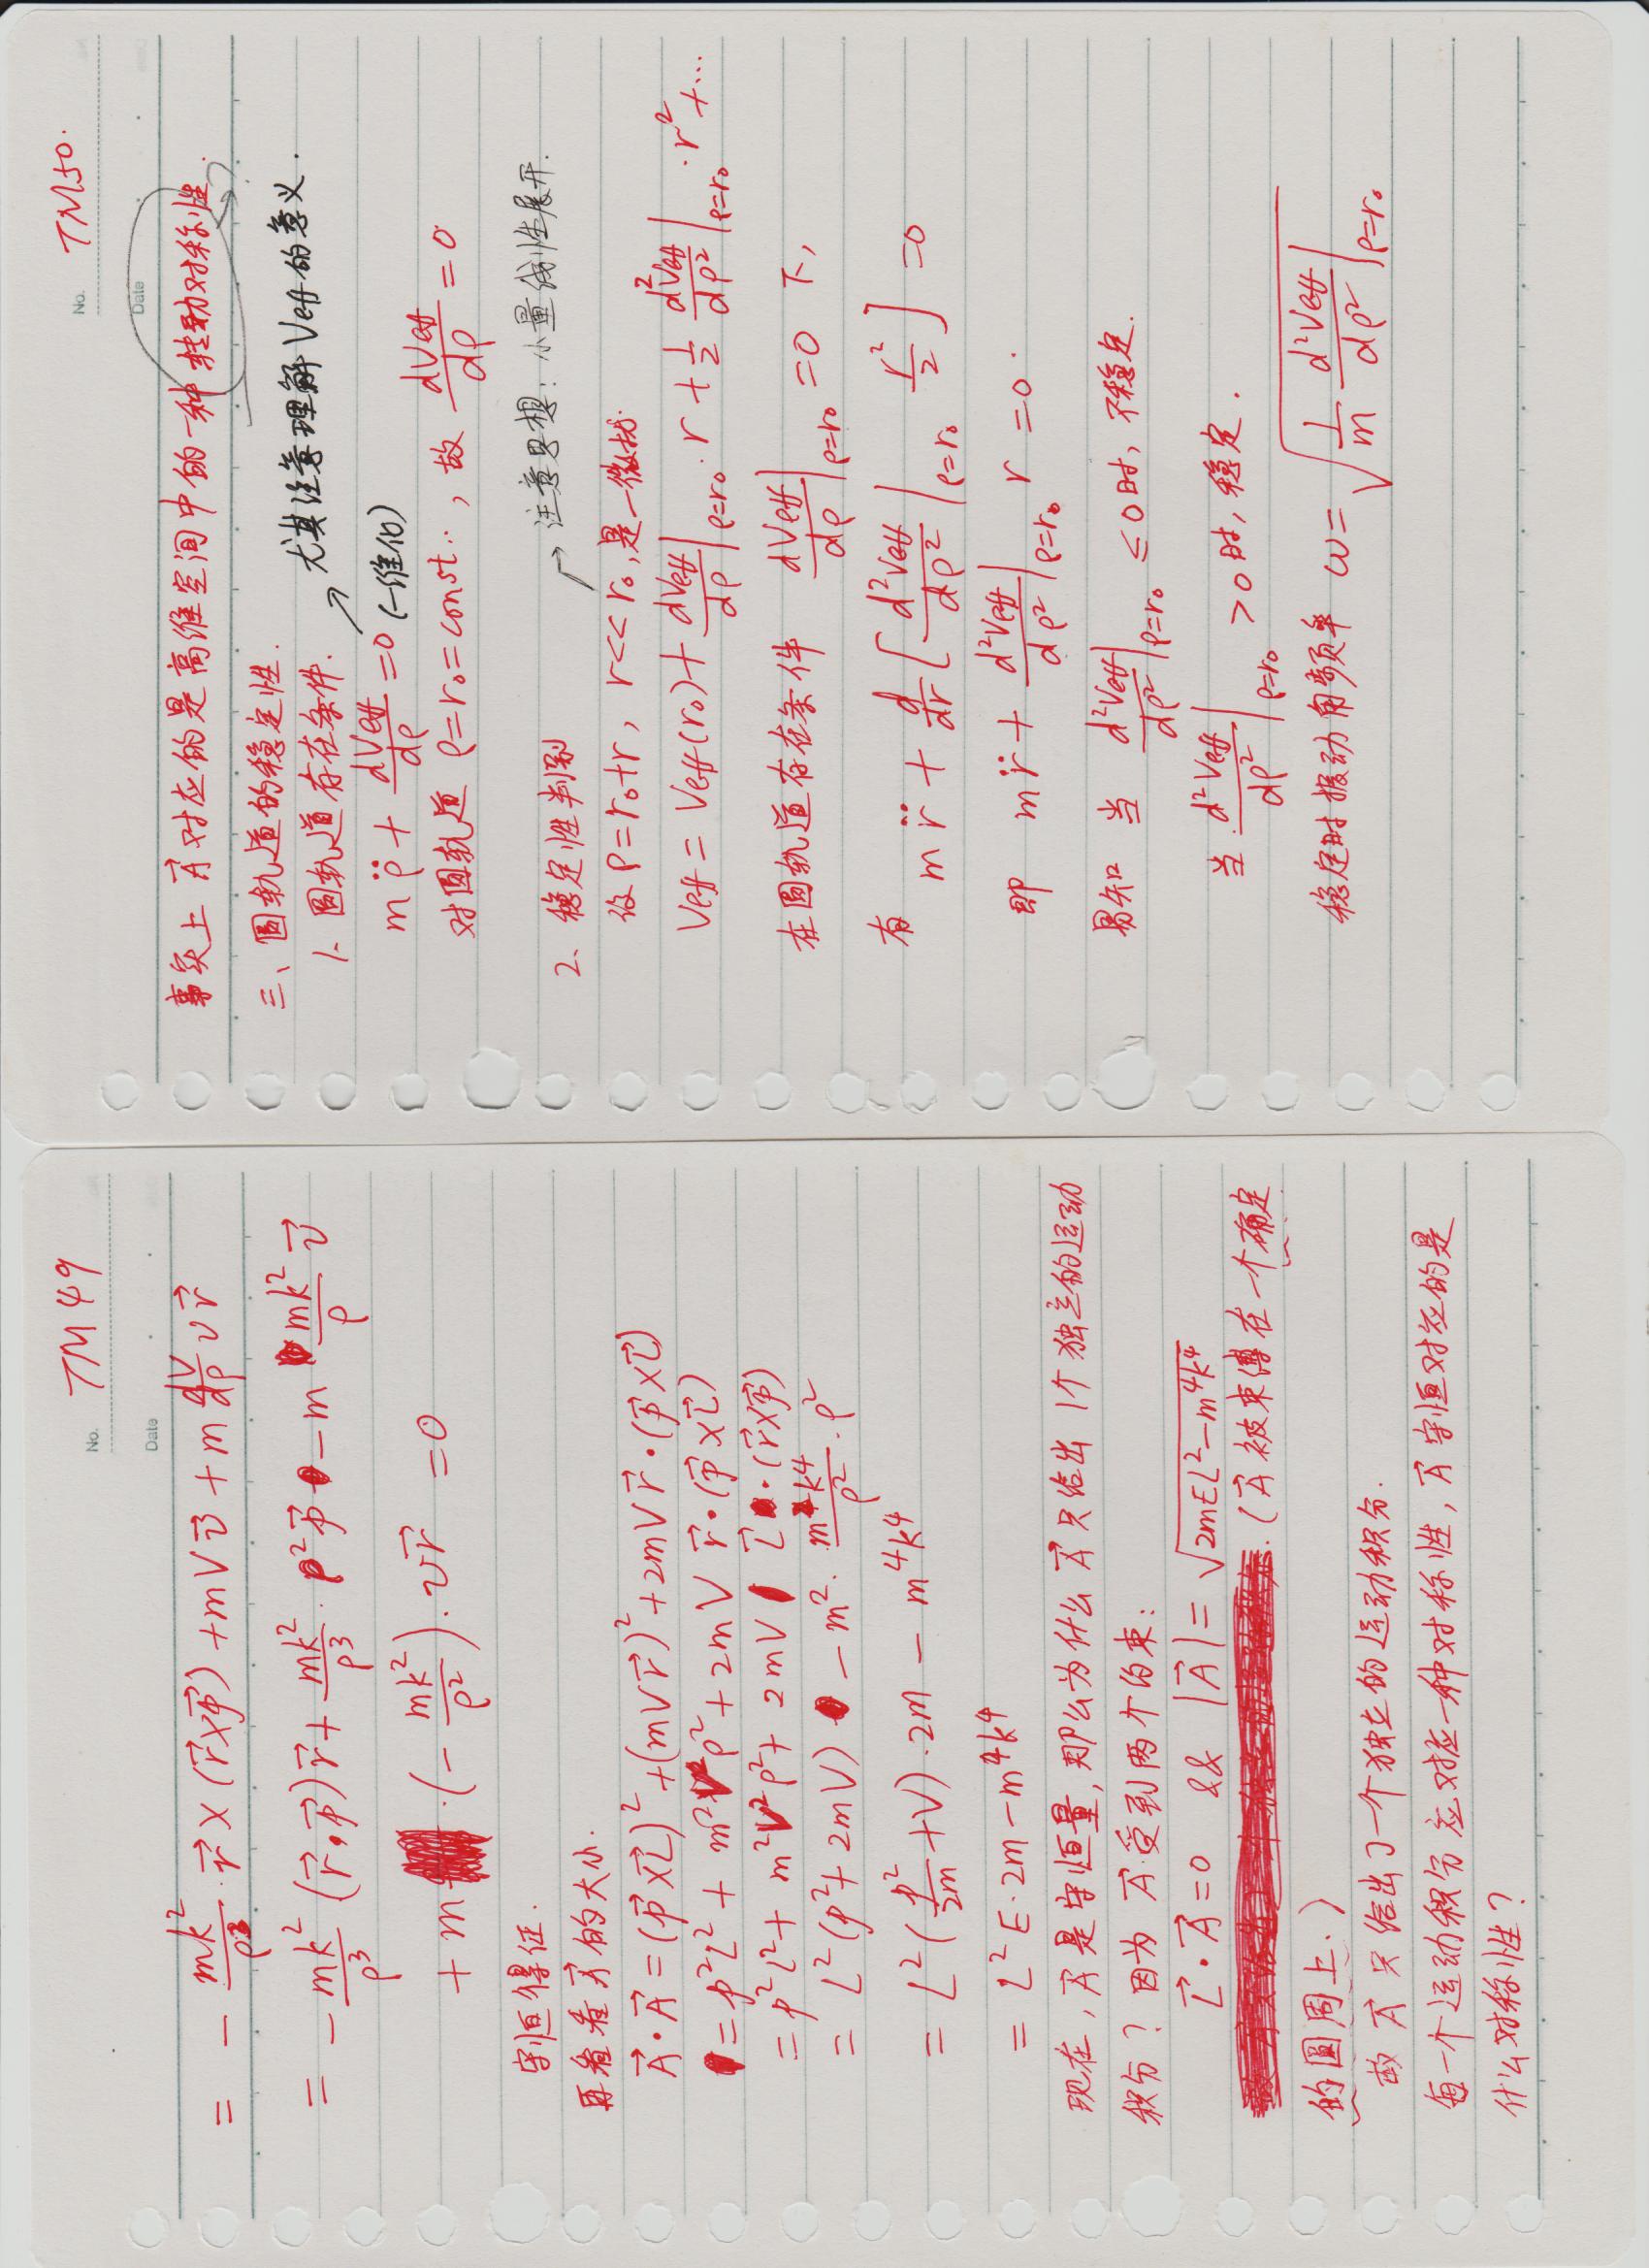 No. TM49
Date
= - mk²/ρ³ · r⃗ × (r⃗×p⃗) + mVv⃗ + m dV/dρ v r⃗
= - mk²/ρ³ (r⃗·p⃗)r⃗ + mk²/ρ³ · ρ²p⃗ - m mk²/ρ v⃗
+ m · (- mk²/ρ²) · v r⃗ = 0
守恒得证.
再看看 A⃗ 的大小.
A⃗·A⃗ = (p⃗×L⃗)² + (mVr⃗)² + 2mVr⃗·(p⃗×L⃗)
= p²L² + m²V²ρ² + 2mV r⃗·(p⃗×L⃗)
= p²L² + m²V²ρ² + 2mV L⃗·(r⃗×p⃗)
= L²(p²+2mV) - m² · m²k⁴/ρ² · ρ²
= L²(p²/2m + V)·2m - m⁴k⁴
= L²E·2m - m⁴k⁴
现在, A⃗ 是守恒量, 那么为什么 A⃗ 只给出 1个独立的运动
积分? 因为 A⃗ 受到两个约束:
L⃗·A⃗ = 0 && |A⃗| = √(2mEL² - m⁴k⁴)
(A⃗ 被束缚在一个确定
的圆周上.)
故 A⃗ 只给出了一个独立的运动积分.
每一个运动积分应对应一种对称性, A⃗ 守恒对应的是
什么对称性?
No. TM50.
Date
事实上 A⃗ 对应的是高维空间中的一种转动对称性. ?
三、圆轨道的稳定性.
1. 圆轨道存在条件.
尤其注意理解 Veff 的意义.
mρ̈ + dVeff/dρ = 0 (一维化)
对圆轨道 ρ = r₀ = const., 故 dVeff/dρ = 0
注意思想: 小量线性展开.
2、稳定性判别
设 ρ = r₀+r, r << r₀, 是一微扰.
Veff = Veff(r₀) + dVeff/dρ|ρ=r₀ · r + 1/2 d²Veff/dρ²|ρ=r₀ · r² + ...
在圆轨道存在条件 dVeff/dρ|ρ=r₀ = 0 下,
有 mr̈ + d/dr [d²Veff/dρ²|ρ=r₀ r²/2] = 0
即 mr̈ + d²Veff/dρ²|ρ=r₀ r = 0.
易知 当 d²Veff/dρ²|ρ=r₀ ≤ 0时, 不稳定.
当 d²Veff/dρ²|ρ=r₀ > 0时, 稳定.
稳定时振动角频率 ω = √(1/m d²Veff/dρ²|ρ=r₀)